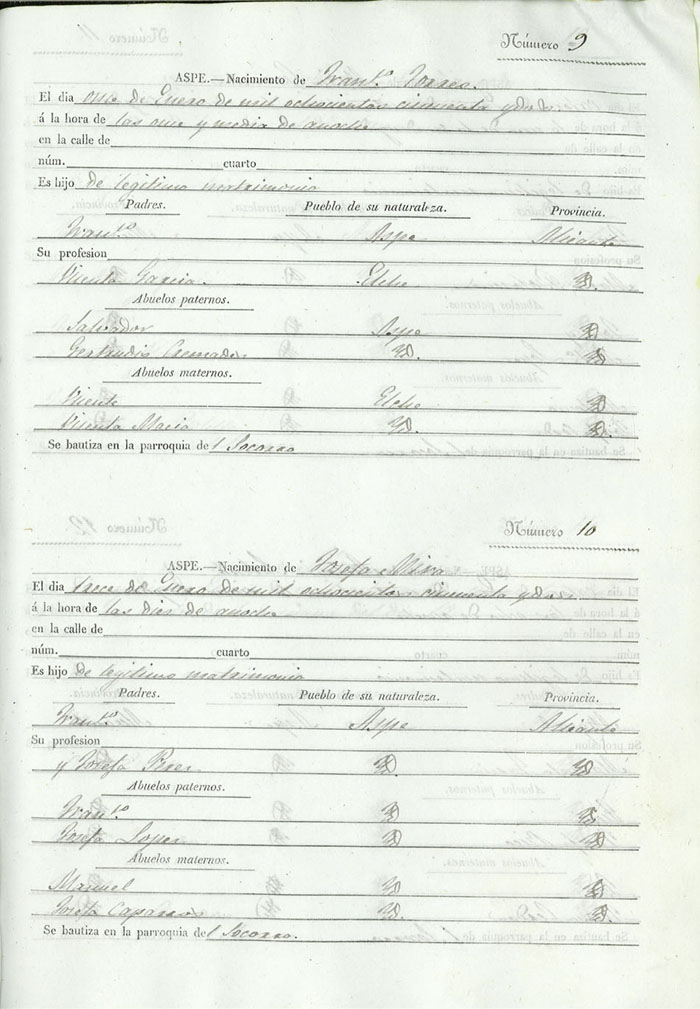 Número 9
ASPE.—Nacimiento de Franco. Torres
El dia once de Enero de mil ochocientos cincuenta y dos
á la hora de las once y media de anoche
en la calle de
núm. cuarto
Es hijo de legitimo matrimonio
Padres. Pueblo de su naturaleza. Provincia.
Franco. Aspe Alicante
Su profesion
Vicenta Garcia. Elche
Abuelos paternos.
Salvador Aspe
Gertrudis Cremades
Abuelos maternos.
Vicente Elche
Vicenta Macia
Se bautiza en la parroquia del Socorro
Número 10
ASPE.—Nacimiento de Josefa Mira
El dia trece de Enero de mil ochocientos cincuenta y dos
á la hora de las dies de anoche
en la calle de
núm. cuarto
Es hijo de legitimo matrimonio
Padres. Pueblo de su naturaleza. Provincia.
Franco. Aspe Alicante
Su profesion
y Josefa Peres
Abuelos paternos.
Franco.
Josefa Lopes
Abuelos maternos.
Manuel
Josefa Caparros
Se bautiza en la parroquia del Socorro.